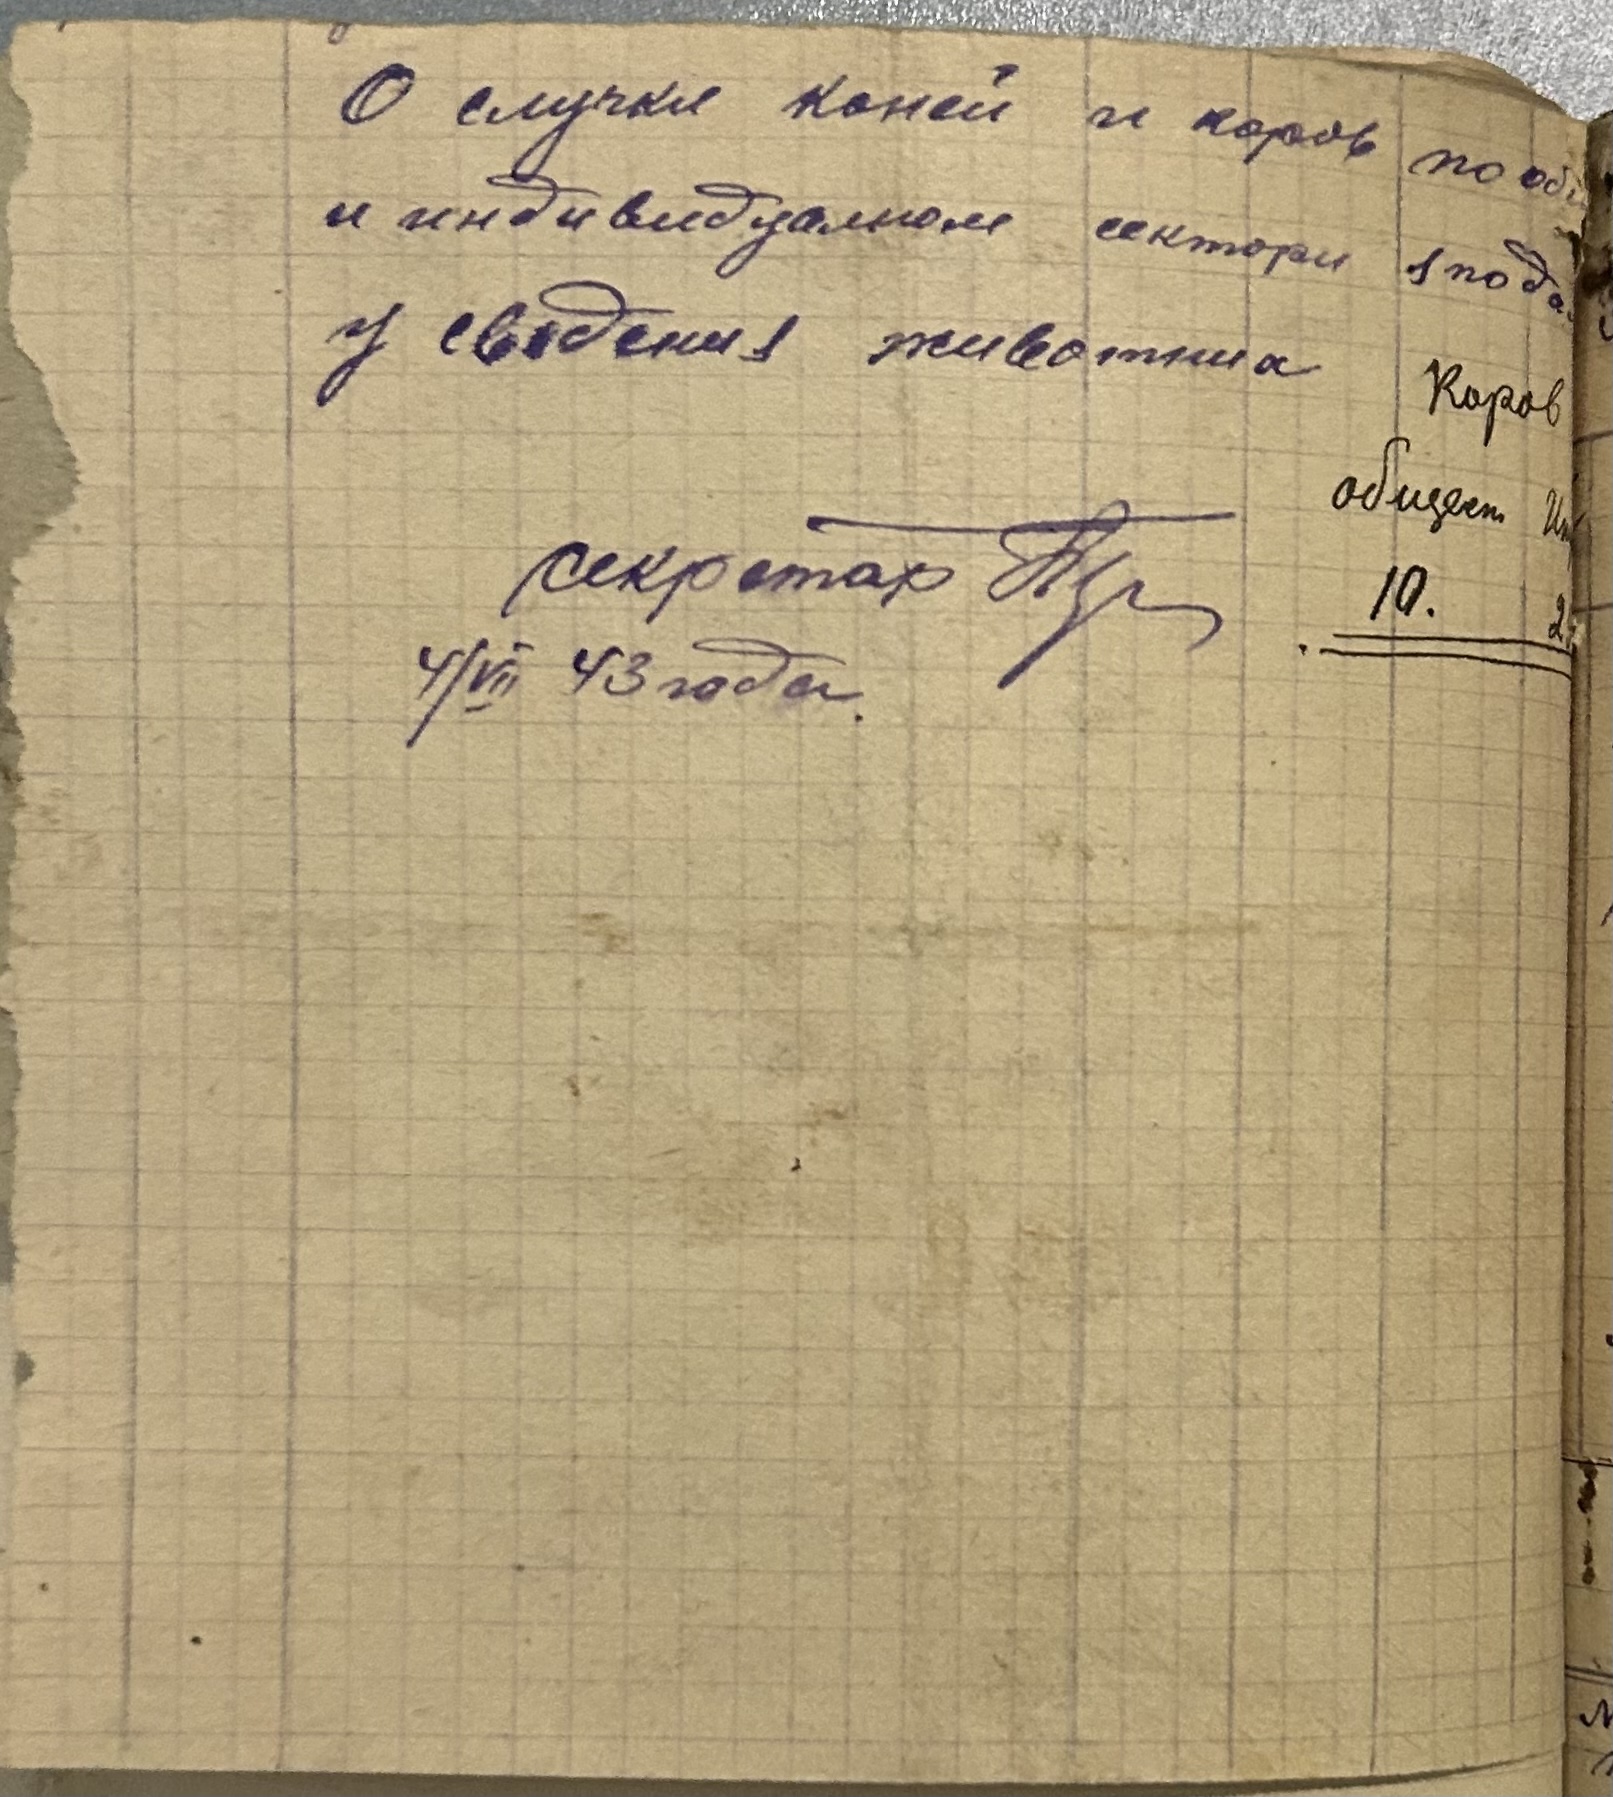 О случки коней и коров по общ
и индивидуалном сектори я пода
у сведения животниа
Коров
общест
секротар
10.
4/VII 43 года.